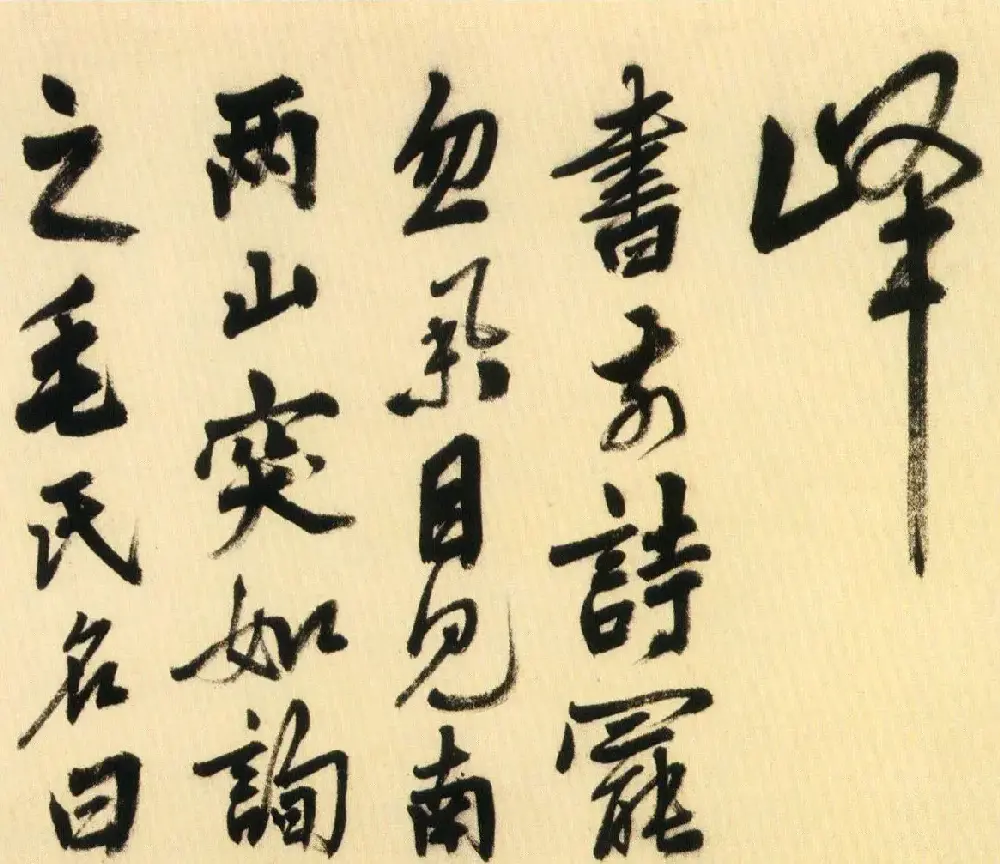 峰
書前詩罷
忽舉目見南
兩山突如詢
之毛氏名曰